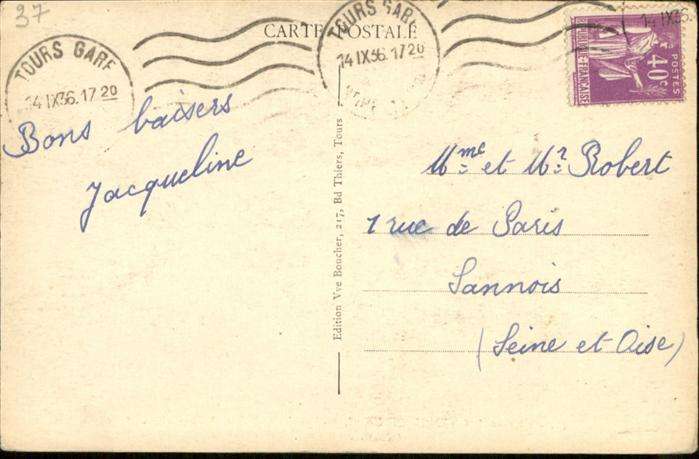 37
CARTE POSTALE
TOURS GARE
14 IX36.17 20
TOURS GARE
14 IX36.17 20
14 IX36
POSTES
40c
RÉPUBLIQUE FRANÇAISE
Bons baisers
Jacqueline
Edition Vve Boucher, 217, Bd Thiers, Tours
Mme et Mr Robert
1 rue de Paris
Sannois
(Seine et Oise)